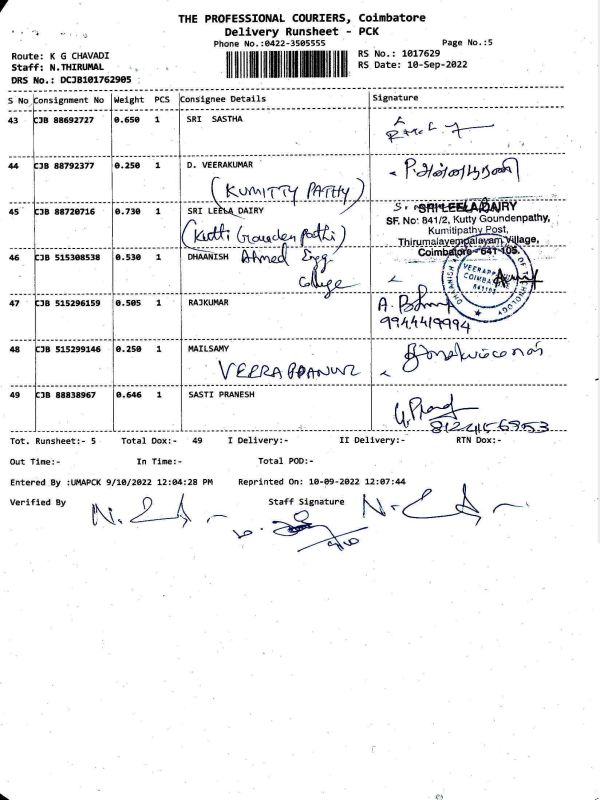 THE PROFESSIONAL COURIERS, Coimbatore
Delivery Runsheet - PCK
Phone No.:0422-3505555
Page No.:5
Route: K G CHAVADI
RS No.: 1017629
Staff: N.THIRUMAL
RS Date: 10-Sep-2022
DRS No.: DCJB101762905
S No Consignment No Weight PCS Consignee Details Signature
43 CJB 88692727 0.650 1 SRI SASTHA
44 CJB 88792377 0.250 1 D. VEERAKUMAR
(KUMITTY PATHY)
45 CJB 88720716 0.730 1 SRI LEELA DAIRY
SRI LEELA DAIRY
SF. No: 841/2, Kutty Goundenpathy,
Kumitipathy Post,
Thirumalayempalayam Village,
Coimbatore - 641 105.
(Kutti Gounden pathi)
46 CJB 515308538 0.530 1 DHAANISH Ahmed Engg
College
47 CJB 515296159 0.505 1 RAJKUMAR
9944419994
48 CJB 515299146 0.250 1 MAILSAMY
VEERAPPANUR
49 CJB 88838967 0.646 1 SASTI PRANESH
8124156953
Tot. Runsheet:- 5 Total Dox:- 49 I Delivery:- II Delivery:- RTN Dox:-
Out Time:- In Time:- Total POD:-
Entered By :UMAPCK 9/10/2022 12:04:28 PM Reprinted On: 10-09-2022 12:07:44
Verified By Staff Signature